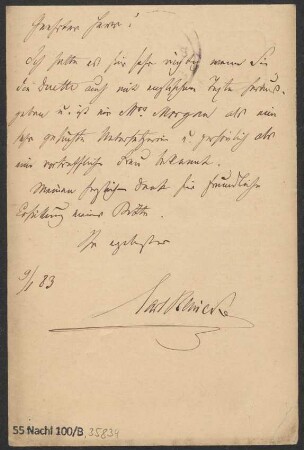 Geehrter Herr!
Ich halte es für sehr richtig wenn Sie
die Duette auch mit englischem Texte heraus-
geben u. ist mir Mrs Morgan als eine
sehr geschickte Uebersetzerin u. persönlich als
eine vortreffliche Frau bekannt.
Meinen herzlichen Dank für freundliche
Erfüllung meiner Bitte.
Ihr ergebenster
9/1 83
Carl Reinecke
55 Nachl 100/B, 35834